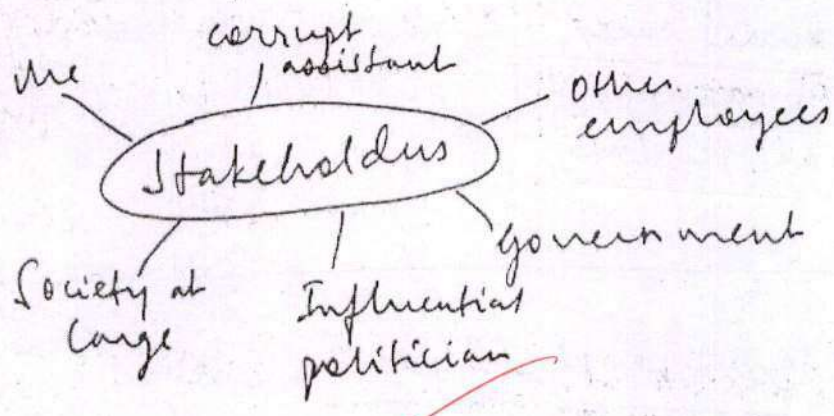 Me
corrupt
assistant
Other
employees
Stakeholders
Government
Society at
large
Influential
politician